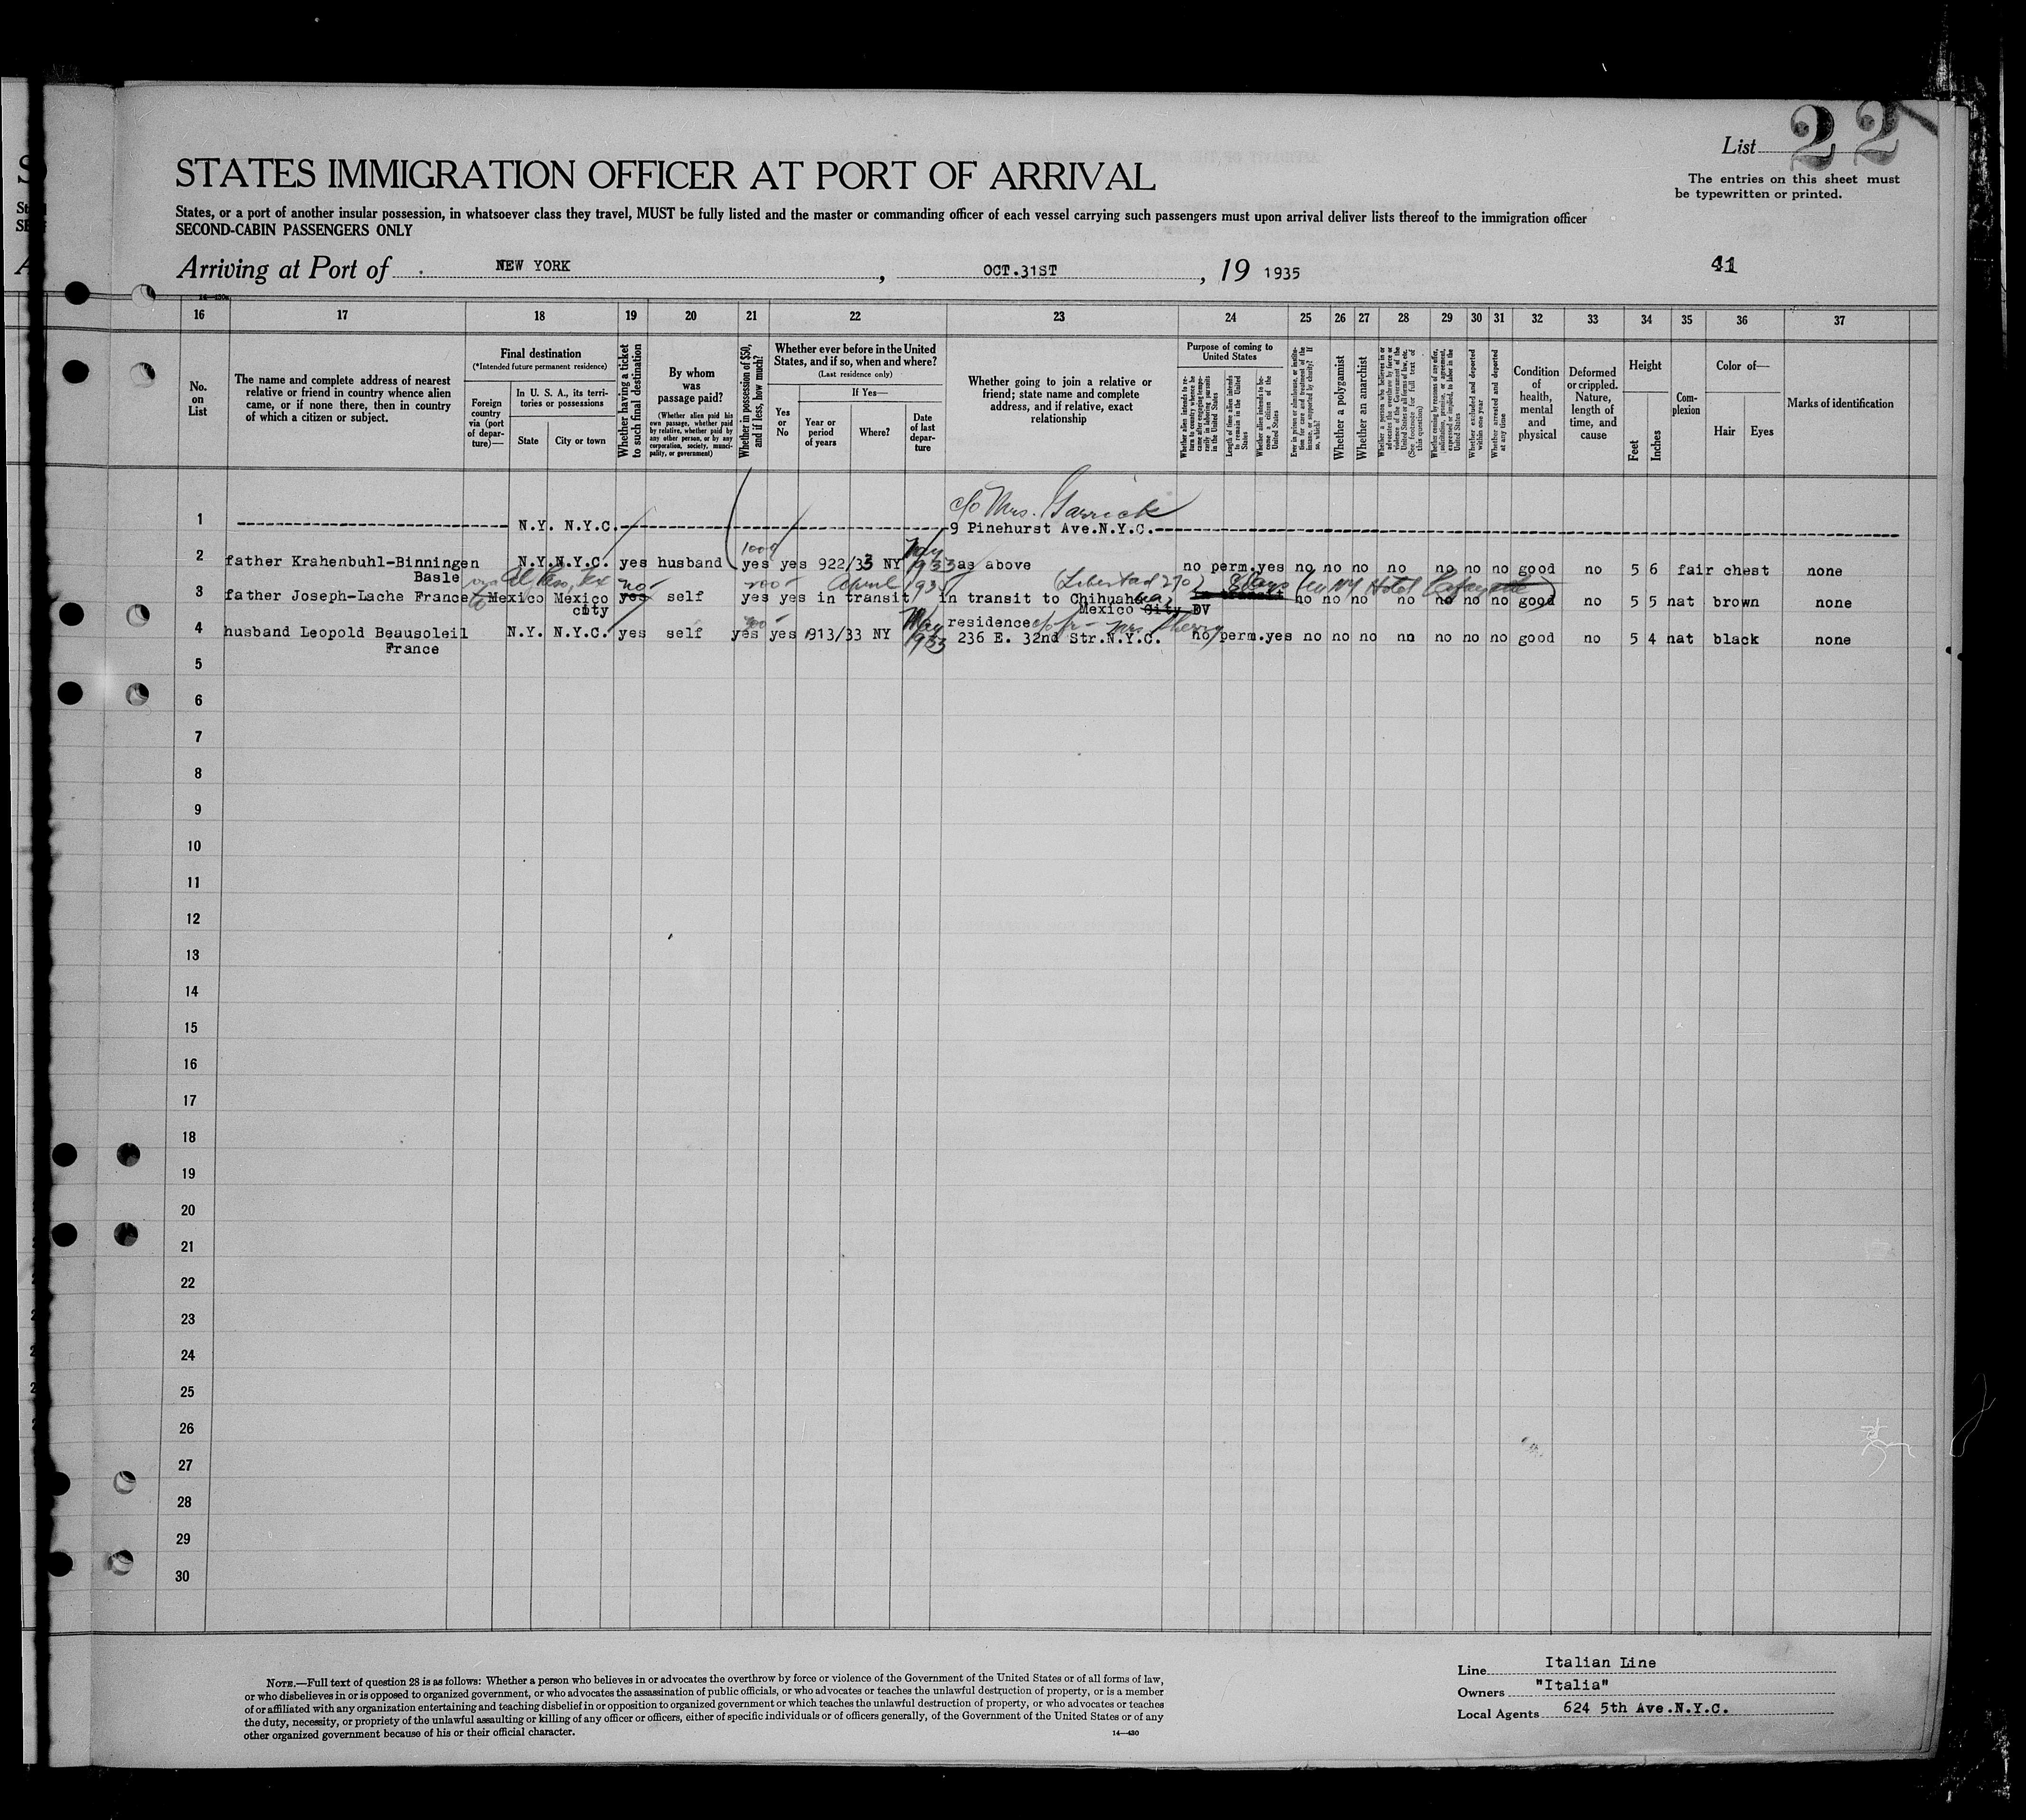 List 22
The entries on this sheet must
be typewritten or printed.
STATES IMMIGRATION OFFICER AT PORT OF ARRIVAL
States, or a port of another insular possession, in whatsoever class they travel, MUST be fully listed and the master or commanding officer of each vessel carrying such passengers must upon arrival deliver lists thereof to the immigration officer
SECOND-CABIN PASSENGERS ONLY
Arriving at Port of NEW YORK, OCT.31ST, 19 1935
41
14—430a
16 17 18 19 20 21 22 23 24 25 26 27 28 29 30 31 32 33 34 35 36 37
No. on List
The name and complete address of nearest
relative or friend in country whence alien
came, or if none there, then in country
of which a citizen or subject.
Final destination
(*Intended future permanent residence)
Foreign country via (port of departure)—
In U. S. A., its territories or possessions
State
City or town
Whether having a ticket to such final destination
By whom was passage paid?
(Whether alien paid his own passage, whether paid by relative, whether paid by any other person, or by any corporation, society, municipality, or government)
Whether in possession of $50, and if less, how much?
Whether ever before in the United
States, and if so, when and where?
(Last residence only)
Yes or No
If Yes—
Year or period of years
Where?
Date of last departure
Whether going to join a relative or
friend; state name and complete
address, and if relative, exact
relationship
Purpose of coming to United States
Whether alien intends to return to country whence he came after engaging temporarily in laboring pursuits in the United States
Length of time alien intends to remain in the United States
Whether alien intends to become a citizen of the United States
Ever in prison or almshouse, or institution for care and treatment of the insane, or supported by charity? If so, which?
Whether a polygamist
Whether an anarchist
Whether a person who believes in or advocates the overthrow by force or violence of the Government of the United States or all forms of law, etc. (See footnote for full text of this question)
Whether coming by reasons of any offer, solicitation, promise, or agreement, expressed or implied, to labor in the United States
Whether excluded and deported within one year
Whether arrested and deported at any time
Condition of health, mental and physical
Deformed or crippled. Nature, length of time, and cause
Height
Feet
Inches
Complexion
Color of—
Hair
Eyes
Marks of identification
c/o Mrs. Garrick
1 N.Y. N.Y.C. 9 Pinehurst Ave.N.Y.C.
1000 May
2 father Krahenbuhl-Binningen N.Y. N.Y.C. yes husband yes yes 922/33 NY 1933 as above no perm.yes no no no no no no no good no 5 6 fair chest none
Basle
via El Paso, Tex no 200 April 1935 (Libertad 270) 8 days (in NY Hotel Lafayette)
3 father Joseph-Lache France to Mexico Mexico yes self yes yes in transit in transit to Chihuahua, in transit no no no no no no no good no 5 5 nat brown none
city Mexico City DV
May c/o fr- Mrs Sherry
4 husband Leopold Beausoleil N.Y. N.Y.C. yes self yes yes 1913/33 NY 1933 residence
France 236 E. 32nd Str.N.Y.C. no perm.yes no no no no no no no good no 5 4 nat black none
5
6
7
8
9
10
11
12
13
14
15
16
17
18
19
20
21
22
23
24
25
26
27
28
29
30
NOTE.—Full text of question 28 is as follows: Whether a person who believes in or advocates the overthrow by force or violence of the Government of the United States or of all forms of law,
or who disbelieves in or is opposed to organized government, or who advocates the assassination of public officials, or who advocates or teaches the unlawful destruction of property, or is a member
of or affiliated with any organization entertaining and teaching disbelief in or opposition to organized government or which teaches the unlawful destruction of property, or who advocates or teaches
the duty, necessity, or propriety of the unlawful assaulting or killing of any officer or officers, either of specific individuals or of officers generally, of the Government of the United States or of any
other organized government because of his or their official character.
14—430
Line Italian Line
Owners "Italia"
Local Agents 624 5th Ave.N.Y.C.